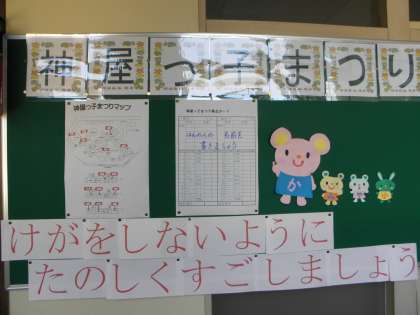 神屋っ子まつり
神屋っ子まつりマップ
はんめんの 名前を
書きましょう
か
けがをしないように
たのしくすごしましょう